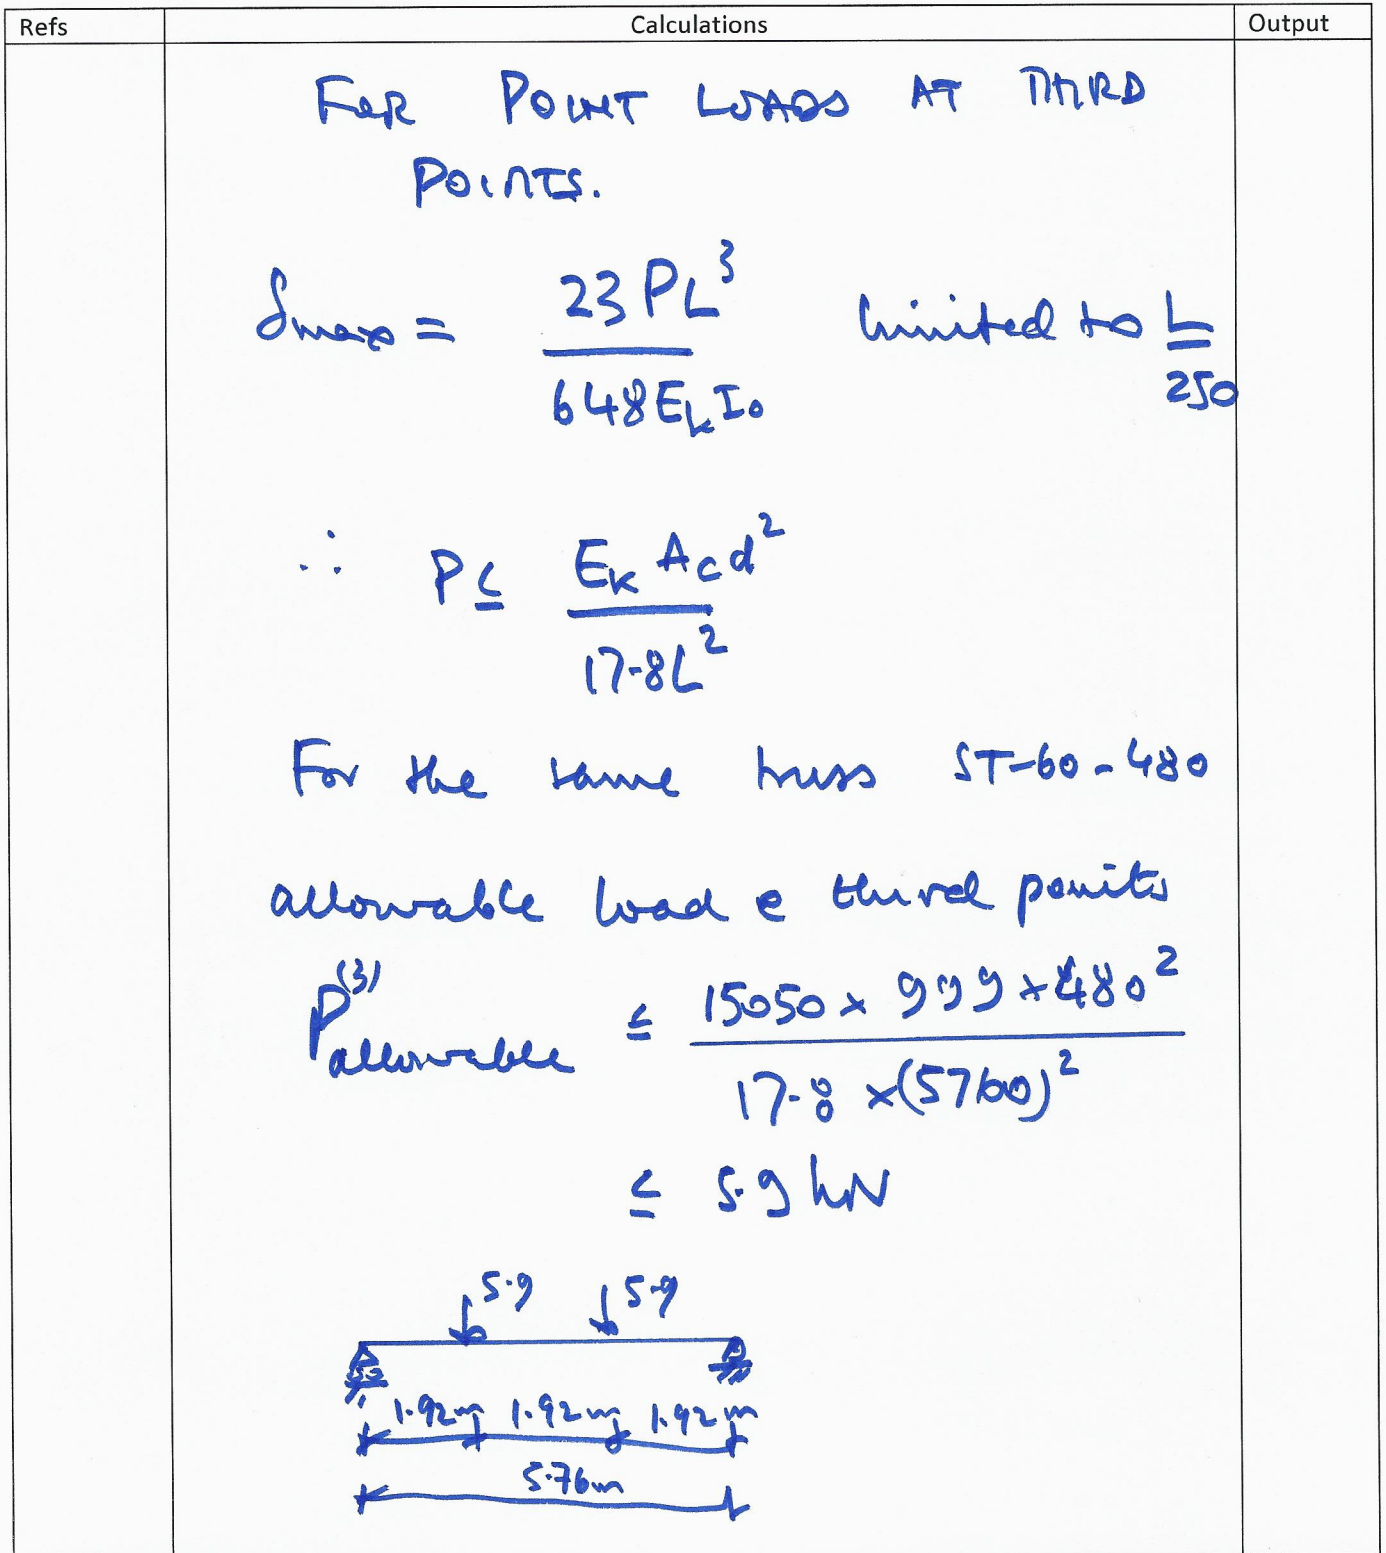 Refs Calculations Output
FOR POINT LOADS AT THIRD
POINTS.
δmax = 23PL³ / 648EkI₀ limited to L/250
∴ P ≤ EkAcd² / 17.8L²
For the same truss ST-60-480
allowable load @ third points
P⁽³⁾allowable ≤ 15050 × 999 × 480² / 17.8 × (5760)²
≤ 5.9 kN
5.9 5.9
1.92m 1.92m 1.92m
5.76m